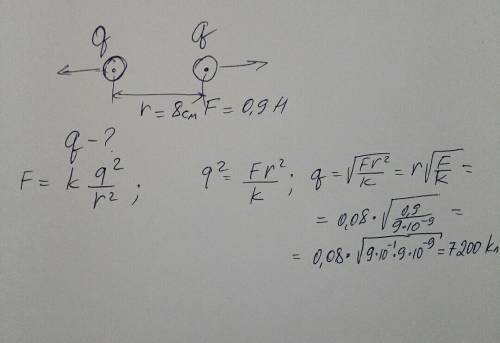 q q
r = 8см F = 0,9 Н
q - ?
F = k q²/r² ; q² = Fr²/k ; q = √(Fr²/k) = r√(F/k) =
= 0,08 · √(0,9/(9·10⁻⁹)) =
= 0,08 · √(9·10⁻¹·9·10⁻⁹) = 7200 кл